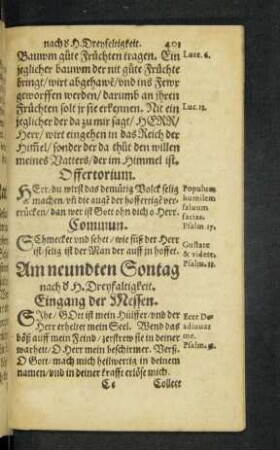 nach d H. Dreyfeltigkeit. 401
Bauwm gůte Früchten tragen. Ein
jeglicher bauwm der nit gůte Früchte
bringt/ wirt abgehawē/ vnd ins Fewr
geworffen werden/ darumb an jhren
Früchten solt jr sie erkennen. Nit ein
jeglicher der da zu mir sagt/ HERR/
Herr/ wirt eingehen in das Reich der
Him̄el/ sonder der da thůt den willen
meines Vatters/ der im Himmel ist.
Offertorium.
HErr/ du wirst das demütig Volck selig
machen/ vñ die augē der hoffertigē ver-
rücken/ dan wer ist Gott ohn dich o Herr.
Commun.
SChmecket vnd sehet/ wie süß der Herr
ist: selig ist der Man der auff in hoffet.
Am neundten Sontag
nach d H. Dreyfaltigkeit.
Eingang der Messen.
SIhe/ GOtt ist mein Hülffer/ vnd der
Herr erhelter mein Seel. Wend das
böß auff mein Feind/ zerstrew sie in deiner
warheit/ O Herr mein beschirmer. Verß.
O Gott/ mach mich heilwertig in deinem
namen/ vnd in deiner krafft erlöse mich.
Collect
Luce. 6.
Luc. 13.
Populum
humilem
saluum
facies.
Psalm. 17.
Gustate
& videte.
Psalm. 33.
Ecce De-
adiuuat
me.
Psalm. 53.